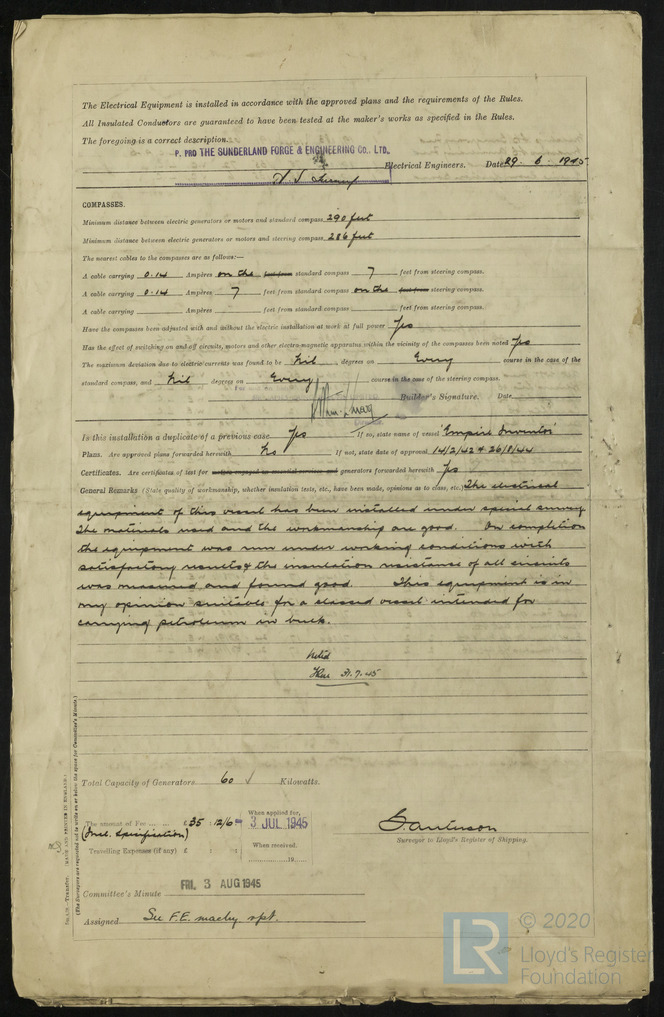 The Electrical Equipment is installed in accordance with the approved plans and the requirements of the Rules.
All Insulated Conductors are guaranteed to have been tested at the maker's works as specified in the Rules.
The foregoing is a correct description.
P. PRO THE SUNDERLAND FORGE & ENGINEERING CO., LTD.,
Electrical Engineers. Date 29. 6. 1945
COMPASSES.
Minimum distance between electric generators or motors and standard compass 290 feet
Minimum distance between electric generators or motors and steering compass 286 feet
The nearest cables to the compasses are as follows:—
A cable carrying 0.14 Ampères on the feet from standard compass 7 feet from steering compass.
A cable carrying 0.14 Ampères 7 feet from standard compass on the feet from steering compass.
A cable carrying Ampères feet from standard compass feet from steering compass.
Have the compasses been adjusted with and without the electric installation at work at full power Yes
Has the effect of switching on and off circuits, motors and other electro-magnetic apparatus within the vicinity of the compasses been noted Yes
The maximum deviation due to electric currents was found to be Nil degrees on Every course in the case of the
standard compass, and Nil degrees on Every course in the case of the steering compass.
Builder's Signature. Date
Is this installation a duplicate of a previous case Yes If so, state name of vessel "Empire Inventor"
Plans. Are approved plans forwarded herewith No If not, state date of approval 14/2/42 & 26/8/44
Certificates. Are certificates of test for generators forwarded herewith Yes
General Remarks (State quality of workmanship, whether insulation tests, etc., have been made, opinions as to class, etc.) The electrical
equipment of this vessel has been installed under special survey.
The materials used and the workmanship are good. On completion
the equipment was run under working conditions with
satisfactory results & the insulation resistance of all circuits
was measured and found good. This equipment is in
my opinion suitable for a classed vessel intended for
carrying petroleum in bulk.
Noted
31.7.45
Total Capacity of Generators 60 Kilowatts.
The amount of Fee ... ... £35 : 12/6
When applied for,
3 JUL 1945
(Incl. Specification)
Travelling Expenses (if any) £ : :
When received.
19
Surveyor to Lloyd's Register of Shipping.
Committee's Minute FRI. 3 AUG 1945
Assigned See F.E. machy rpt.
(MADE AND PRINTED IN ENGLAND.)
(The Surveyors are requested not to write on or below the space for Committee's Minute.)
LR
© 2020
Lloyd's Register
Foundation